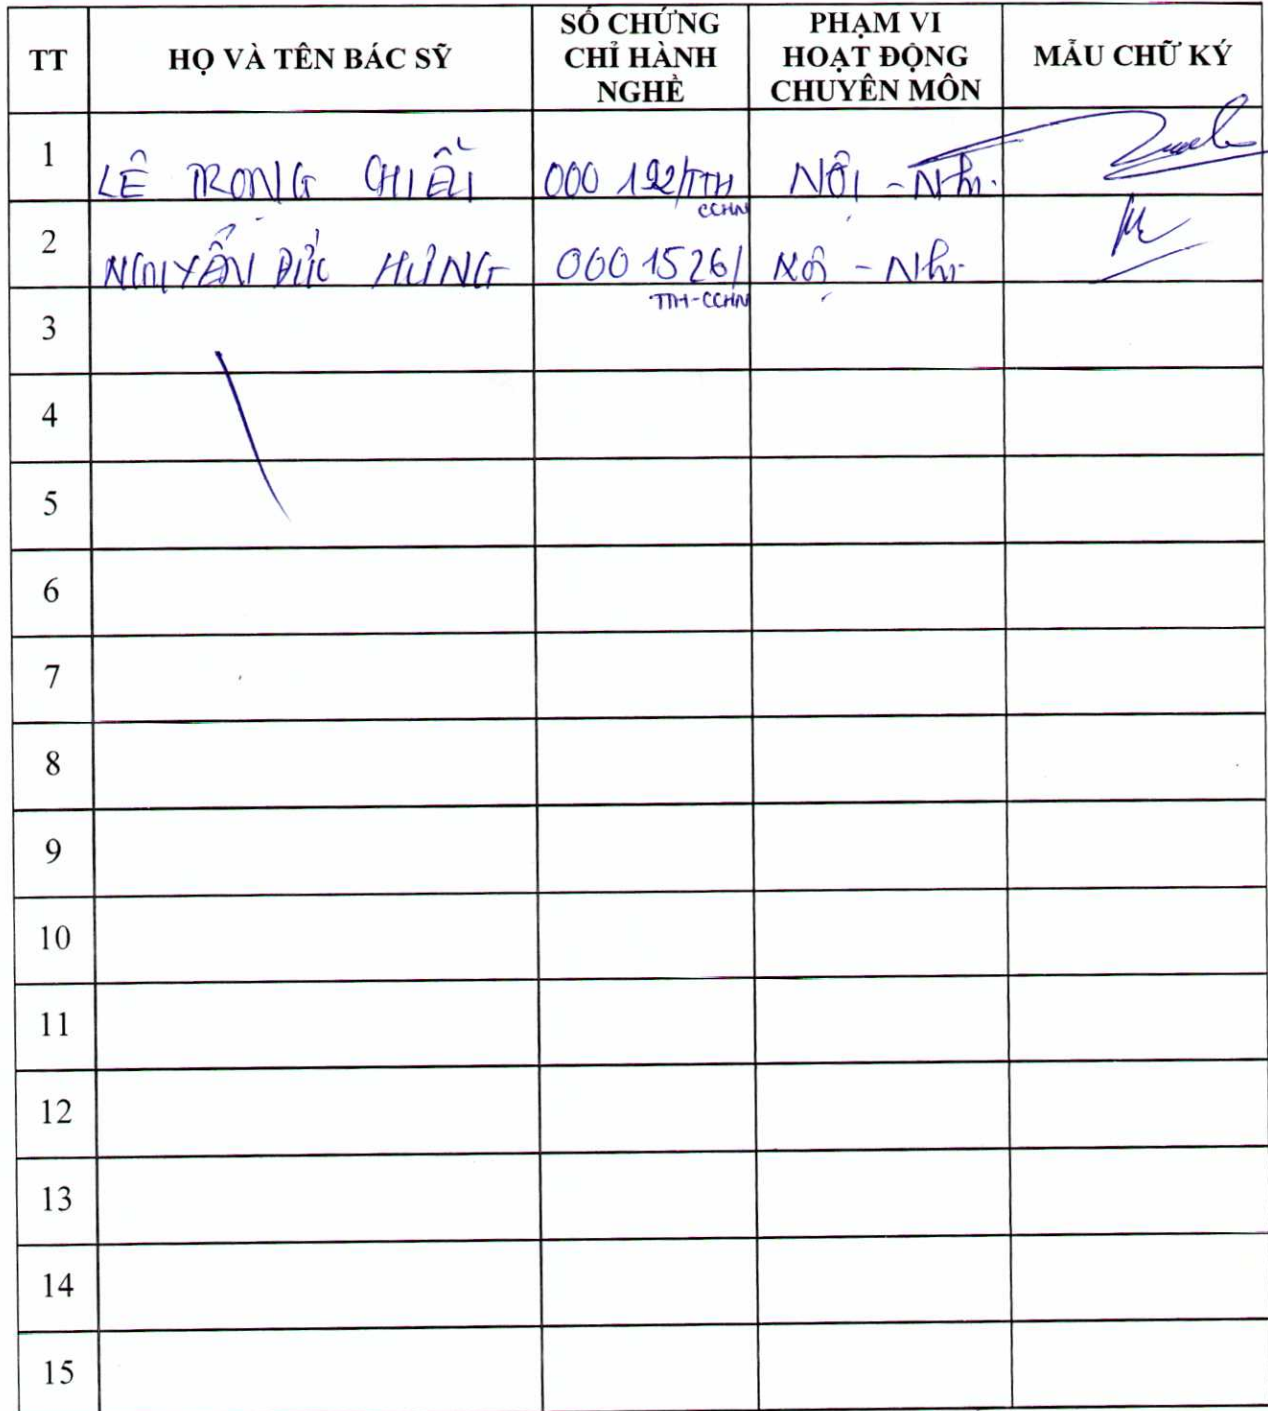 TT HỌ VÀ TÊN BÁC SỸ SỐ CHỨNG CHỈ HÀNH NGHỀ PHẠM VI HOẠT ĐỘNG CHUYÊN MÔN MẪU CHỮ KÝ
1 LÊ TRỌNG 000 192/TTH CCHN NỘI - Nhi.
2 NGUYỄN ĐỨC HÙNG 0001526/ TTH-CCHN Nội - Nhi
3
4
5
6
7
8
9
10
11
12
13
14
15